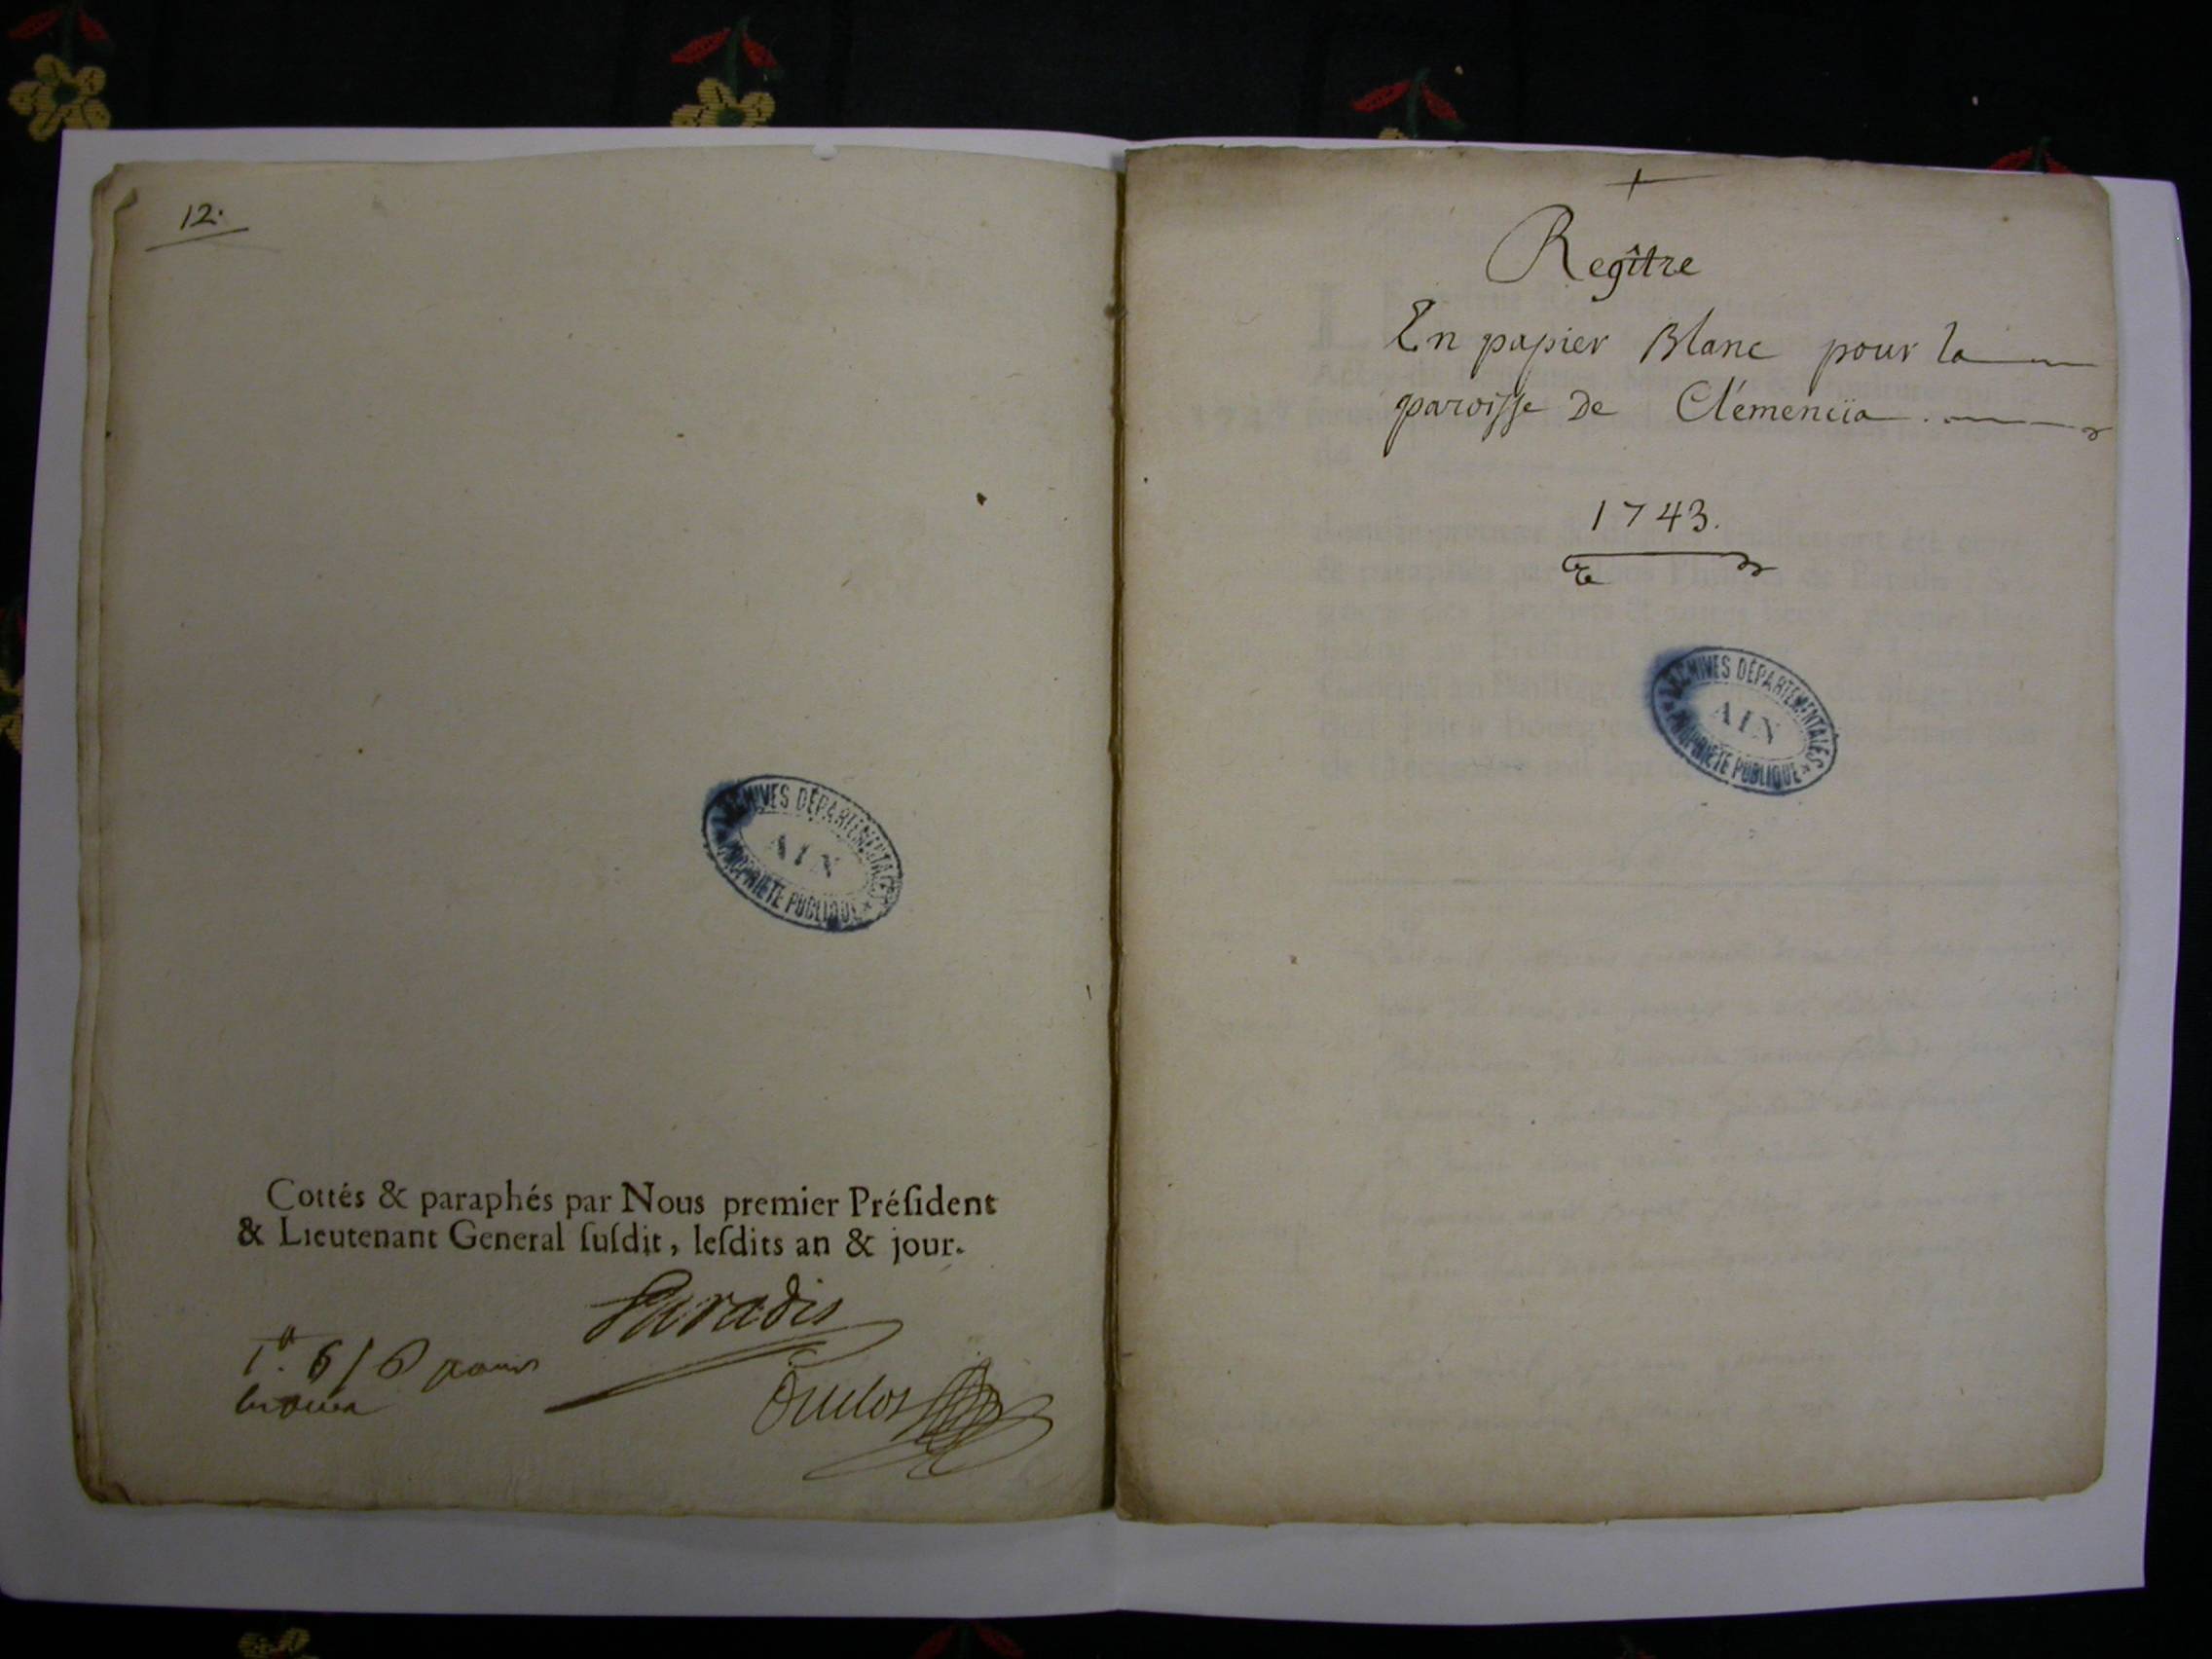 12.
ARCHIVES DÉPARTEMENTALES
AIN
* PROPRIÉTÉ PUBLIQUE *
Cottés & paraphés par Nous premier Préſident
& Lieutenant General ſuſdit, leſdits an & jour.
Paradis
+
Regître
En papier Blanc pour la
paroisse De Clémencia.
1743.
ARCHIVES DÉPARTEMENTALES
AIN
* PROPRIÉTÉ PUBLIQUE *